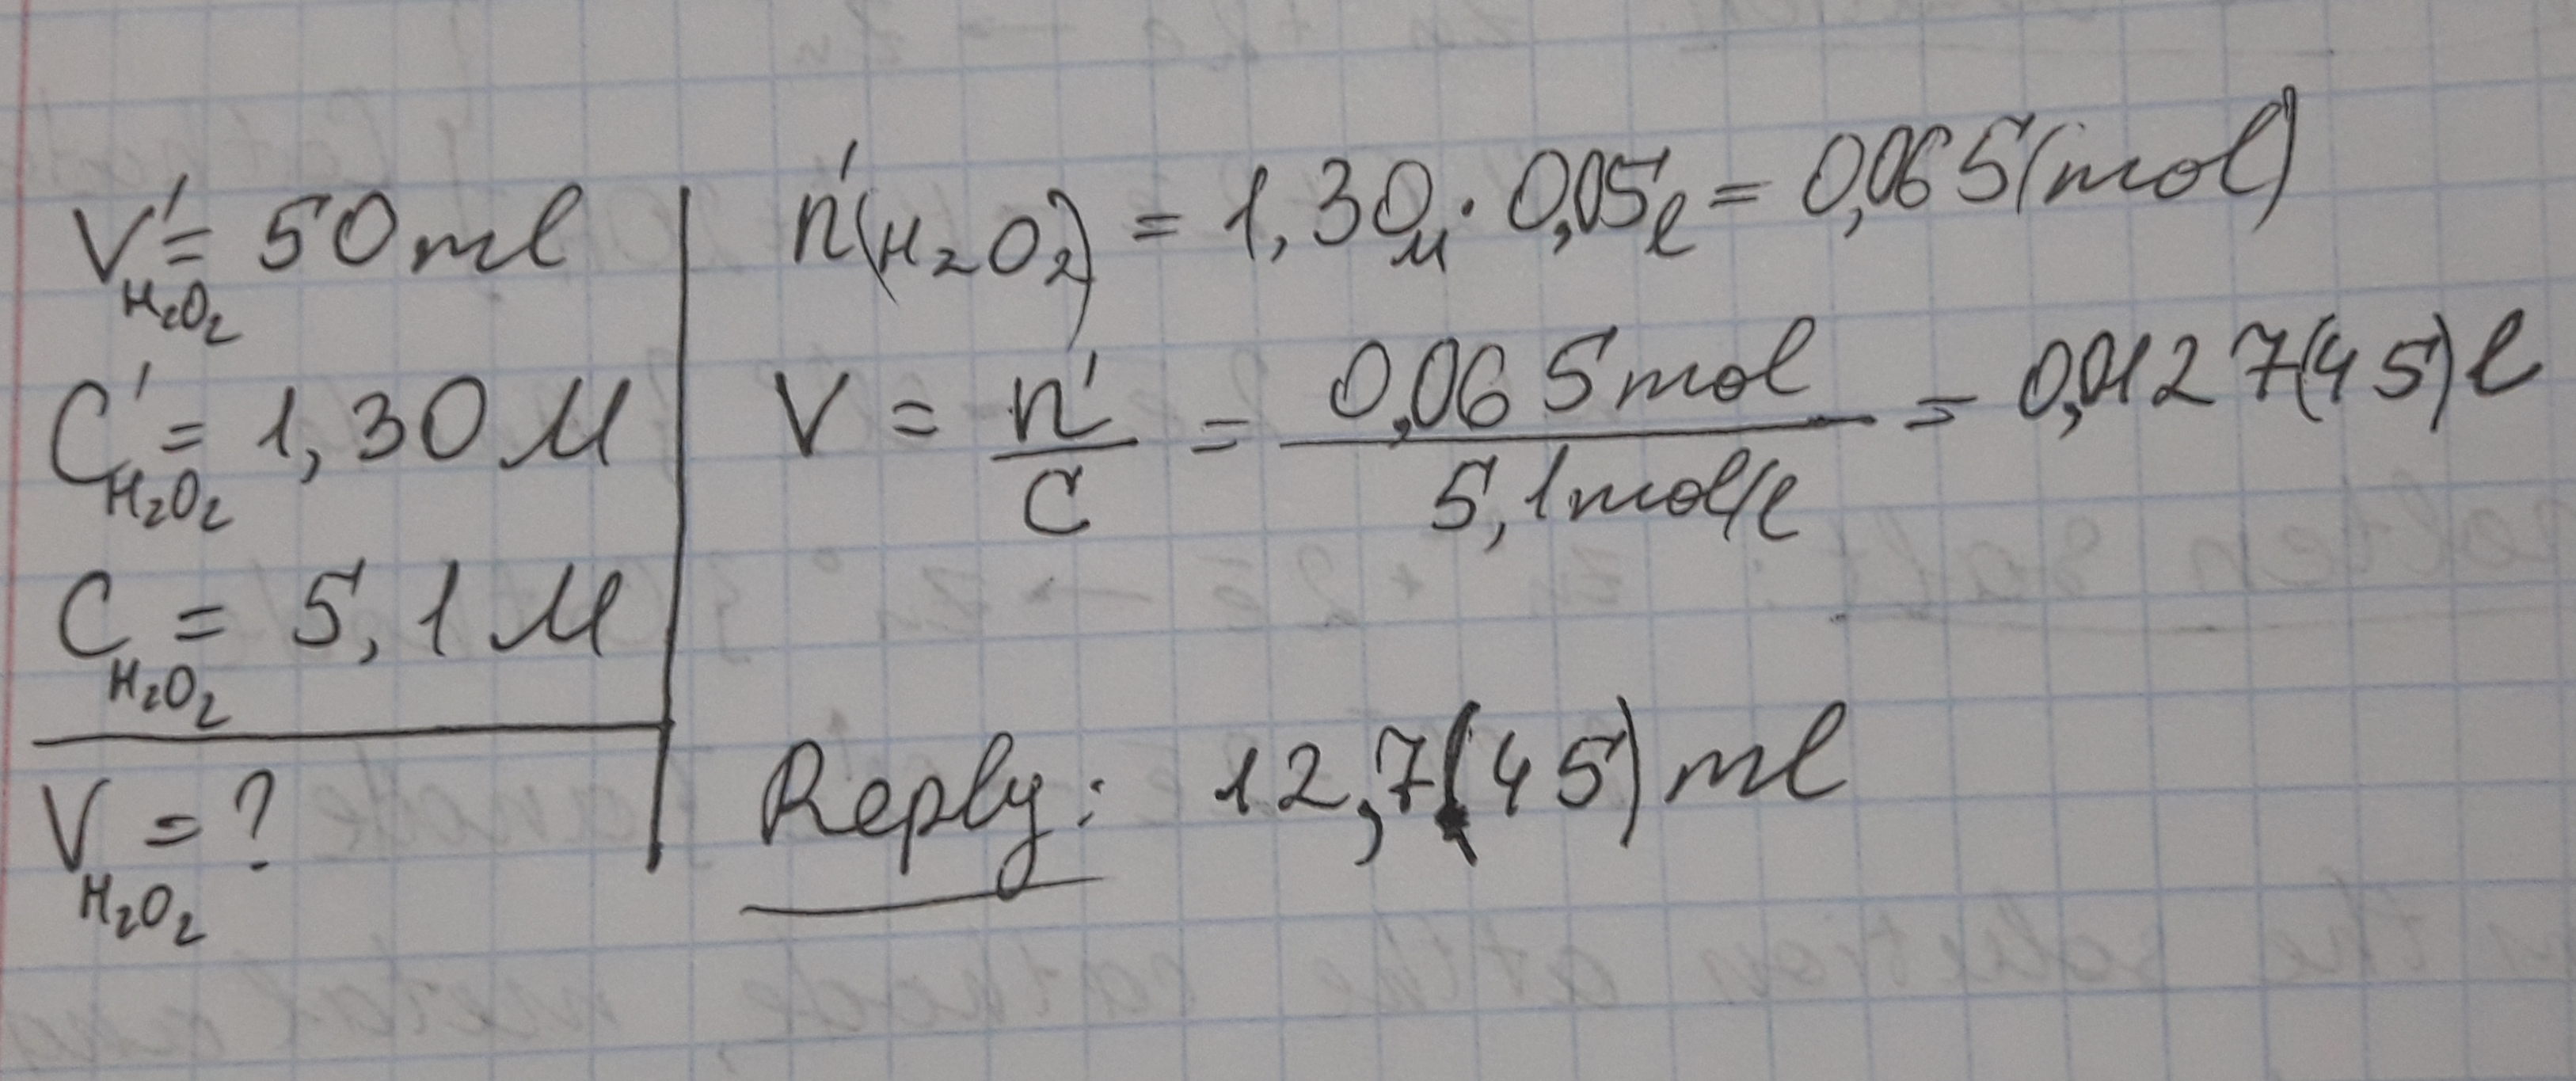 V'H₂O₂ = 50 ml
C'H₂O₂ = 1,30 M
CH₂O₂ = 5,1 M
VH₂O₂ = ?
n'(H₂O₂) = 1,30 M · 0,05 l = 0,065 (mol)
V = n'/C = 0,065 mol / 5,1 mol/l = 0,0127(45) l
Reply: 12,7(45) ml